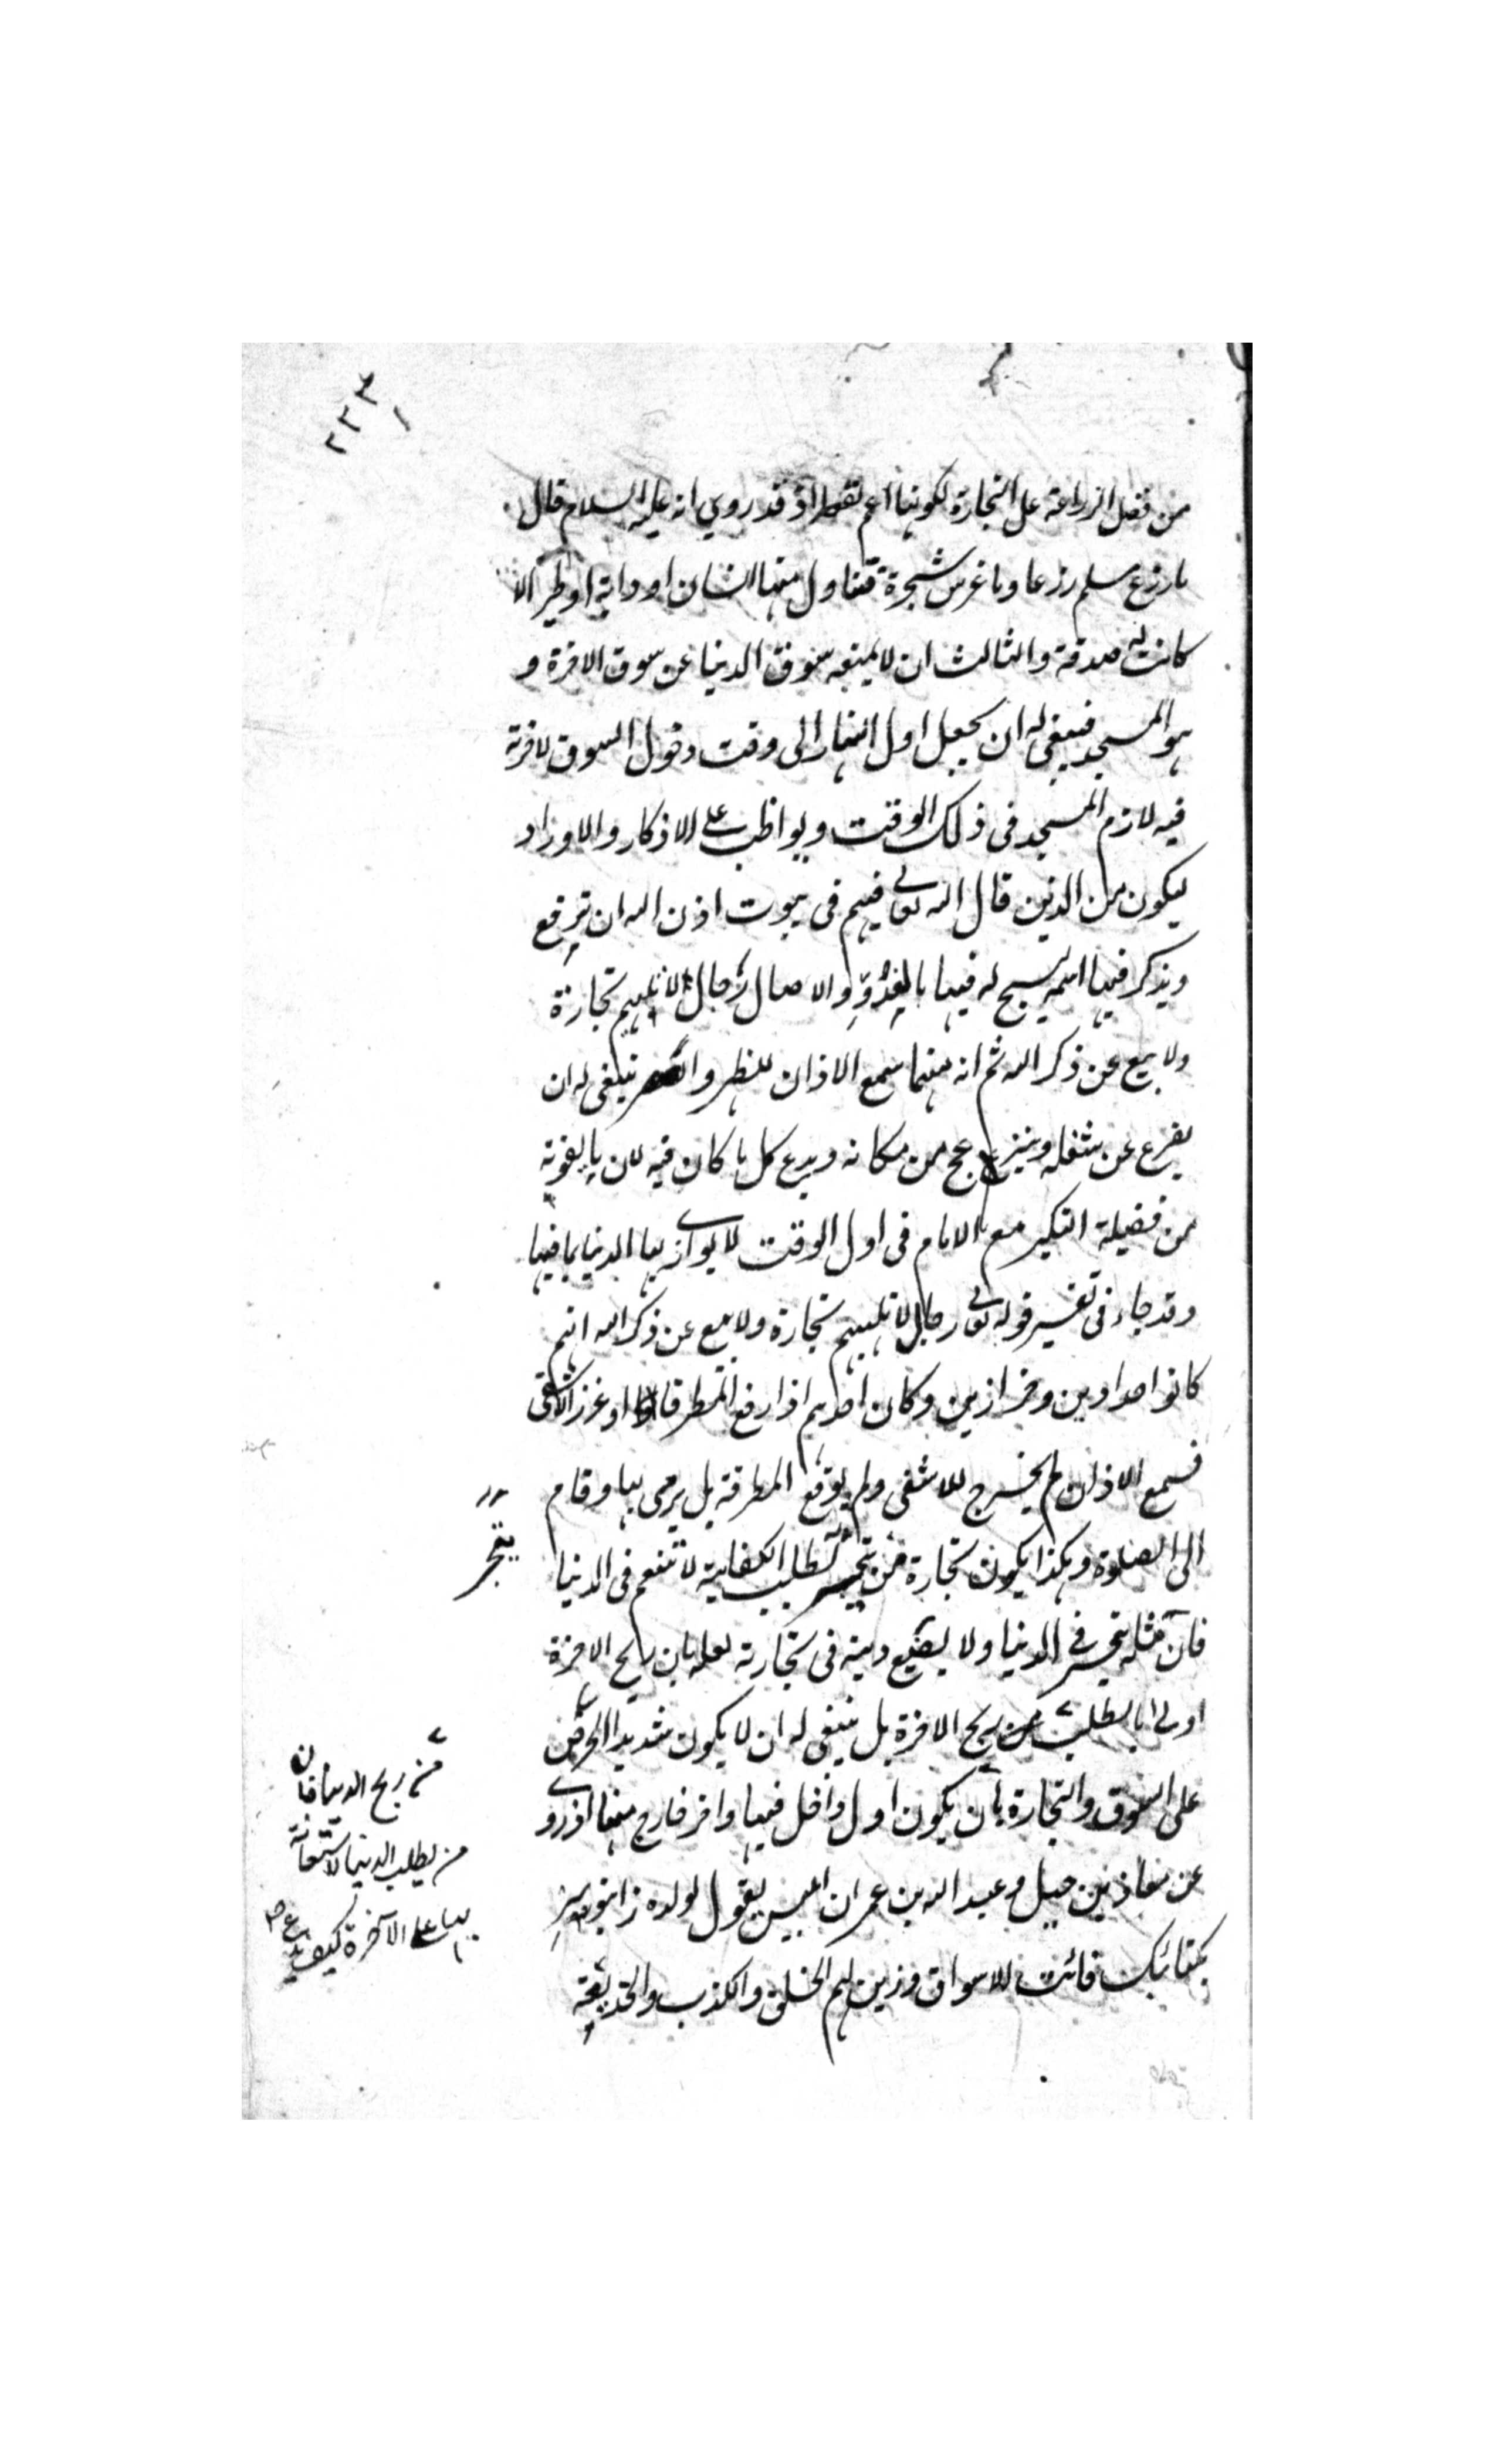 ٢٢٣
من فضل الزراعة على التجارة لكونها اعم نفعا اذ قد روي انه عليه السلام قال
ما زرع مسلم زرعا وما غرس شجرة فتناول منها انسان او دابة او طير الا
كانت له صدقة والثالث ان لا يمنعه سوق الدنيا عن سوق الاخرة و
هو المسجد فينبغي له ان يجعل اول النهار الى وقت دخول السوق لاخرته
فيه لازم المسجد في ذلك الوقت ويواظب على الاذكار والاوراد
ليكون من الذين قال الله تعالى فيهم في بيوت اذن الله ان ترفع
ويذكر فيها اسمه يسبح له فيها بالغدو والاصال رجال لا تلهيهم تجارة
ولا بيع عن ذكر الله ثم انه مهما سمع الاذان للظهر والعصر ينبغي له ان
يفرغ عن شغله وينزعج من مكانه ويدع كل ما كان فيه لان ما يفوته
من فضيلة التكبير مع الامام في اول الوقت لا يوازيها الدنيا بما فيها
وقد جاء في تفسير قوله تعالى رجال لا تلهيهم تجارة ولا بيع عن ذكر الله انهم
كانوا حدادين وخرازين وكان احدهم اذا رفع المطرقة او غرز الاشفى
فسمع الاذان لم يخرج الاشفى ولم يوقع المطرقة بل يرمى بها وقام
الى الصلوة وهكذا يكون تجارة من يتجر لطلب الكفاية لا تنعم في الدنيا
يتجر
فان مثله يتجر في الدنيا ولا يضيع دينه في تجارته لعلمه بان ربح الاخرة
اولى بالطلب من ربح الاخرة بل ينبغي له ان لا يكون شديد الحرص
من ربح الدنيا فان
من يطلب الدنيا للاستعانة
بها على الآخرة كيف يدع صح
على السوق والتجارة بان يكون اول داخل فيها واخر خارج منها اذ روي
عن معاذ بن جبل وعبد الله بن عمر ان ابليس يقول لولده زلنبور سر
بكتائبك فائت الاسواق وزين لهم الحلف والكذب والخديعة